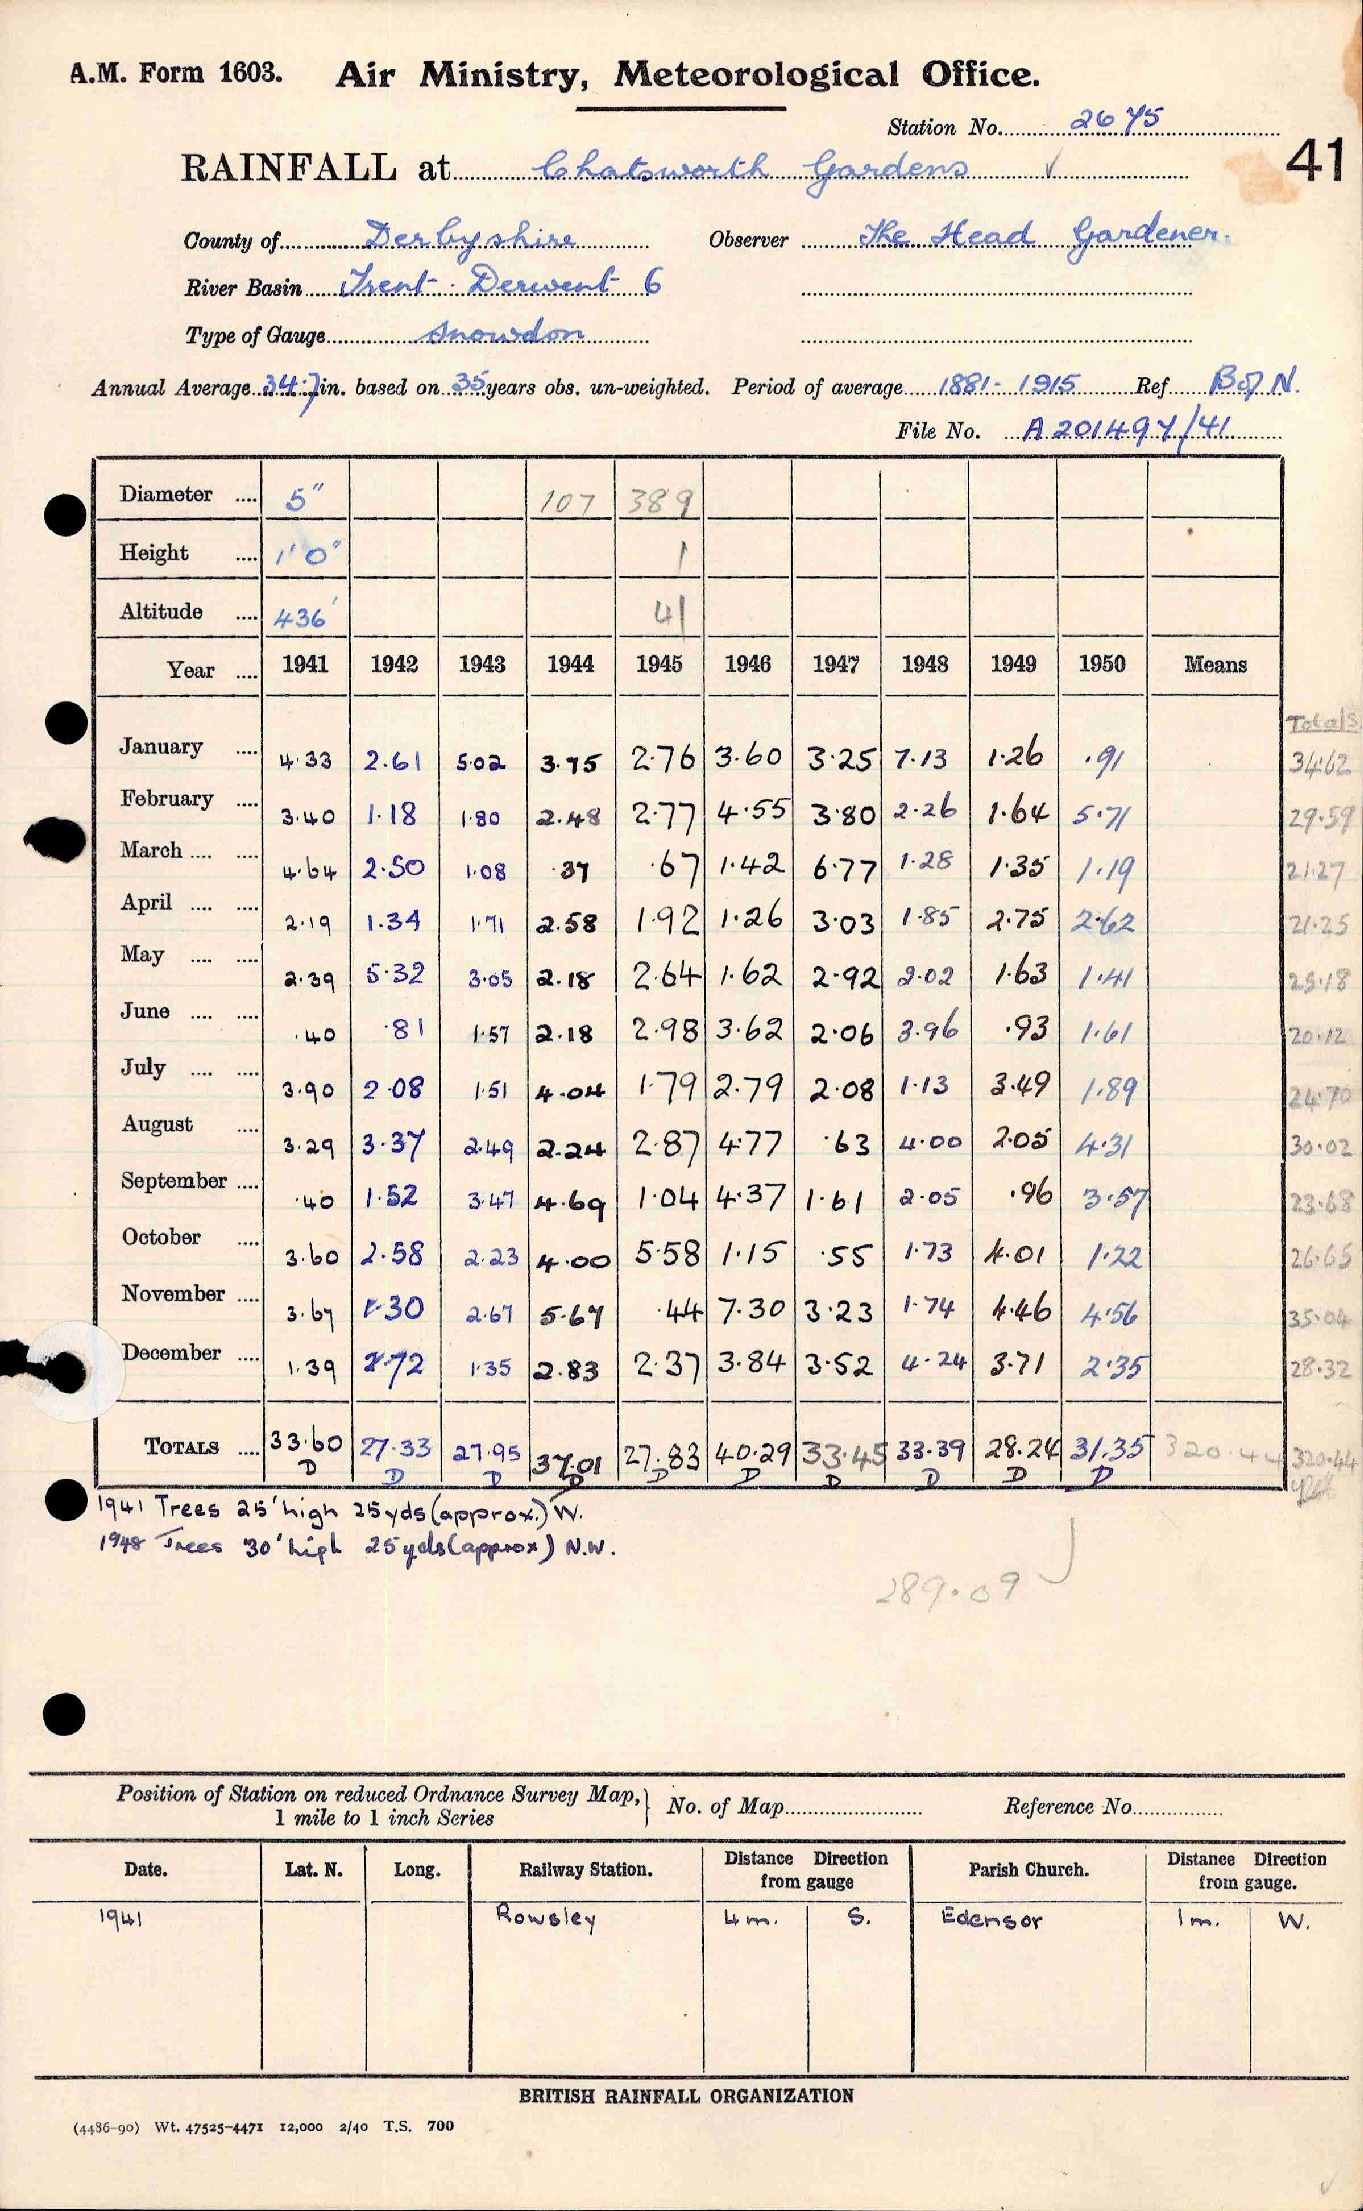 A.M. Form 1603. Air Ministry, Meteorological Office.
Station No. 2675
41
RAINFALL at Chatsworth Gardens ✓
County of Derbyshire Observer The Head Gardener.
River Basin Trent: Derwent 6
Type of Gauge Snowdon
Annual Average 34.7 in. based on 35 years obs. un-weighted. Period of average 1881-1915 Ref B of N.
File No. A 201497/41
Diameter .... 5" 107 389
Height .... 1'0" 1
Altitude .... 436' 41
Year .... 1941 1942 1943 1944 1945 1946 1947 1948 1949 1950 Means
Totals
January .... 4.33 2.61 5.02 3.75 2.76 3.60 3.25 7.13 1.26 .91 34.62
February .... 3.40 1.18 1.80 2.48 2.77 4.55 3.80 2.26 1.64 5.71 29.59
March .... .... 4.64 2.50 1.08 .37 .67 1.42 6.77 1.28 1.35 1.19 21.27
April .... .... 2.19 1.34 1.71 2.58 1.92 1.26 3.03 1.85 2.75 2.62 21.25
May .... .... 2.39 5.32 3.05 2.18 2.64 1.62 2.92 2.02 1.63 1.41 25.18
June .... .... .40 .81 1.57 2.18 2.98 3.62 2.06 3.96 .93 1.61 20.12
July .... .... 3.90 2.08 1.51 4.04 1.79 2.79 2.08 1.13 3.49 1.89 24.70
August .... 3.29 3.37 2.49 2.24 2.87 4.77 .63 4.00 2.05 4.31 30.02
September .... .40 1.52 3.47 4.69 1.04 4.37 1.61 2.05 .96 3.57 23.68
October .... 3.60 2.58 2.23 4.00 5.58 1.15 .55 1.73 4.01 1.22 26.65
November .... 3.67 1.30 2.67 5.67 .44 7.30 3.23 1.74 4.46 4.56 35.04
December .... 1.39 2.72 1.35 2.83 2.37 3.84 3.52 4.24 3.71 2.35 28.32
TOTALS .... 33.60 27.33 27.95 37.01 27.83 40.29 33.45 33.39 28.24 31.35 320.44 320.44
D D D D D D D D D D
1941 Trees 25' high 25 yds (approx.) W.
1948 Trees 30' high 25 yds (approx) N.W.
289.09
Position of Station on reduced Ordnance Survey Map, } No. of Map Reference No.
1 mile to 1 inch Series
Date. Lat. N. Long. Railway Station. Distance Direction from gauge Parish Church. Distance Direction from gauge.
1941 Rowsley 4 m. S. Edensor 1 m. W.
BRITISH RAINFALL ORGANIZATION
(4486-90) Wt. 47525-4471 12,000 2/40 T.S. 700